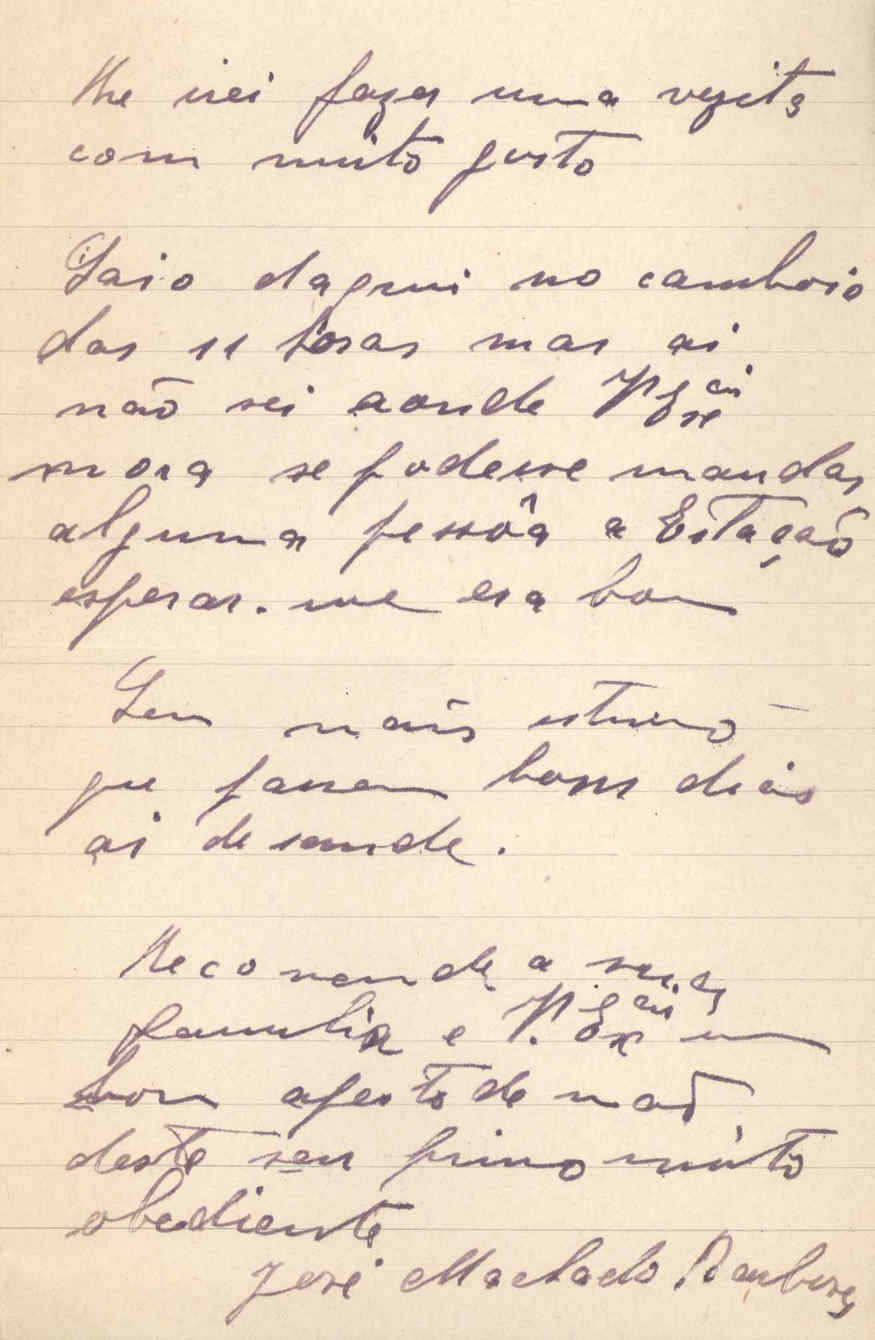 lhe irei fazer uma vezita
com muito gosto
Saio daqui no camboio
das 11 horas mas ai
não sei aonde V. Excia
mora se podesse mandar
alguma pessôa a Estação
esperar-me era bom
Sem mais estimo
que passem bons dias
ai de saude.
Recomenda a sua
familia e V. Excia um
bom aperto de mão
deste seu primo muito
obediente
José Machado